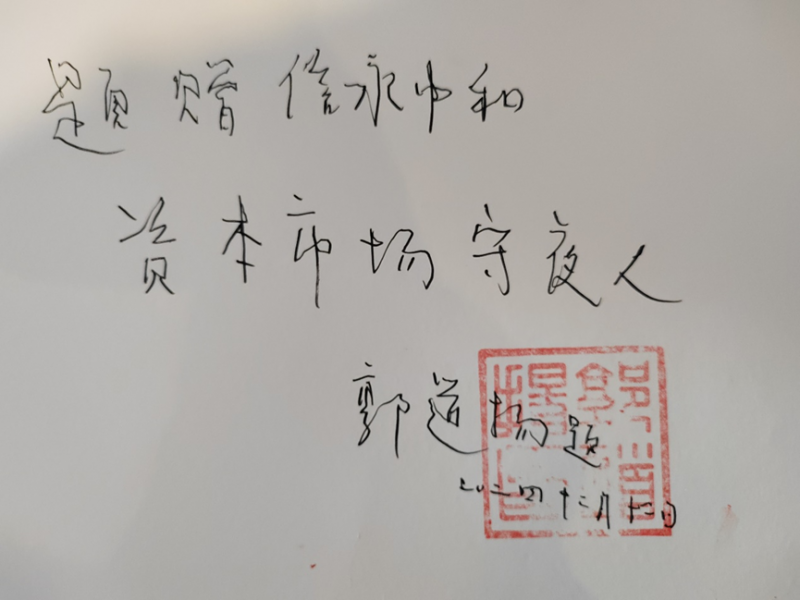 题赠信永中和
资本市场守夜人
郭道扬题
二〇二四十二月十二日